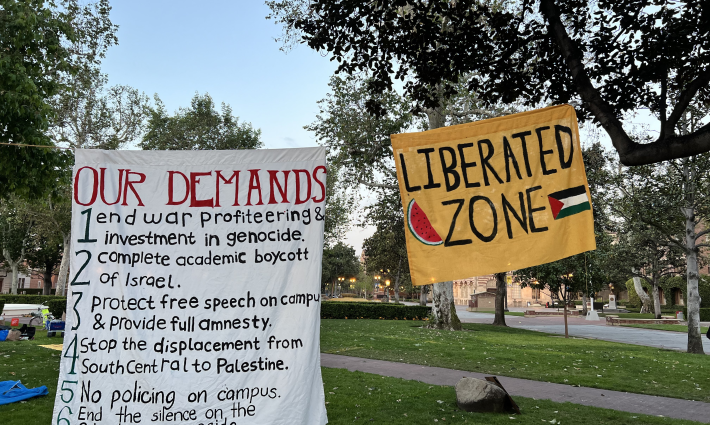 OUR DEMANDS
1 end war profiteering &
investment in genocide.
2 complete academic boycott
of Israel.
3 Protect free speech on campu
& Provide full amnesty.
4 Stop the displacement from
South Central to Palestine.
5 No policing on campus.
6 End the silence on the
LIBERATED
ZONE